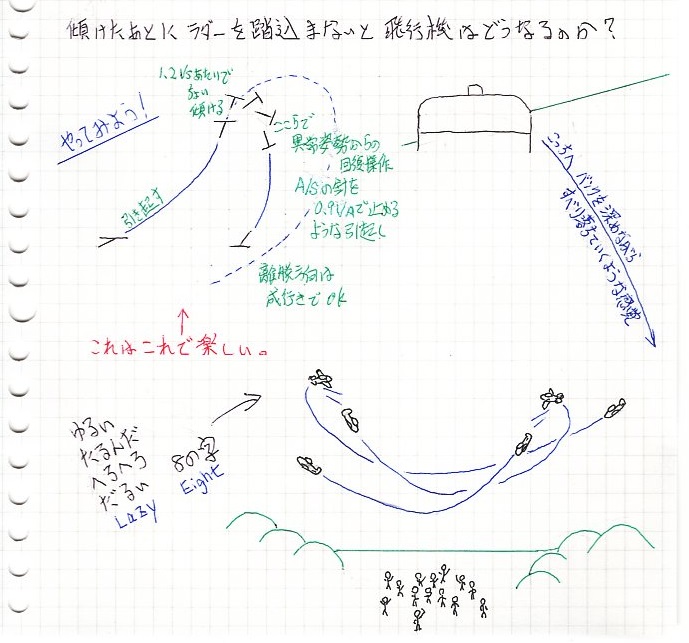 傾けたあとに ラダーを踏込まないと 飛行機はどうなるのか?
やってみよう!
1.2Vsあたいで
ちょい
傾ける
引き起す
ここらで
異常姿勢からの
回復操作
A/Sの針を
0.9VAで止める
ような引起し
離脱方向は
成行きでOK
こっちへ バンクを深めながら
すべり落ちていくような感覚
これはこれで楽しい。
ゆるい
たるんだ
へろへろ
だるい
Lazy
8の字
Eight